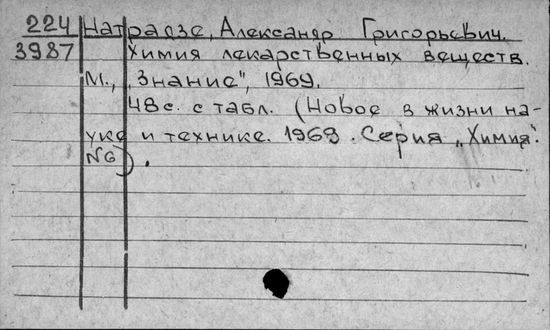 224 Натрадзе, Александр Григорьевич.
3987 Химия лекарственных веществ.
М., "Знание", 1969.
48 с. с табл. (Новое в жизни на-
уке и технике. 1969. Серия "Химия".
№6).